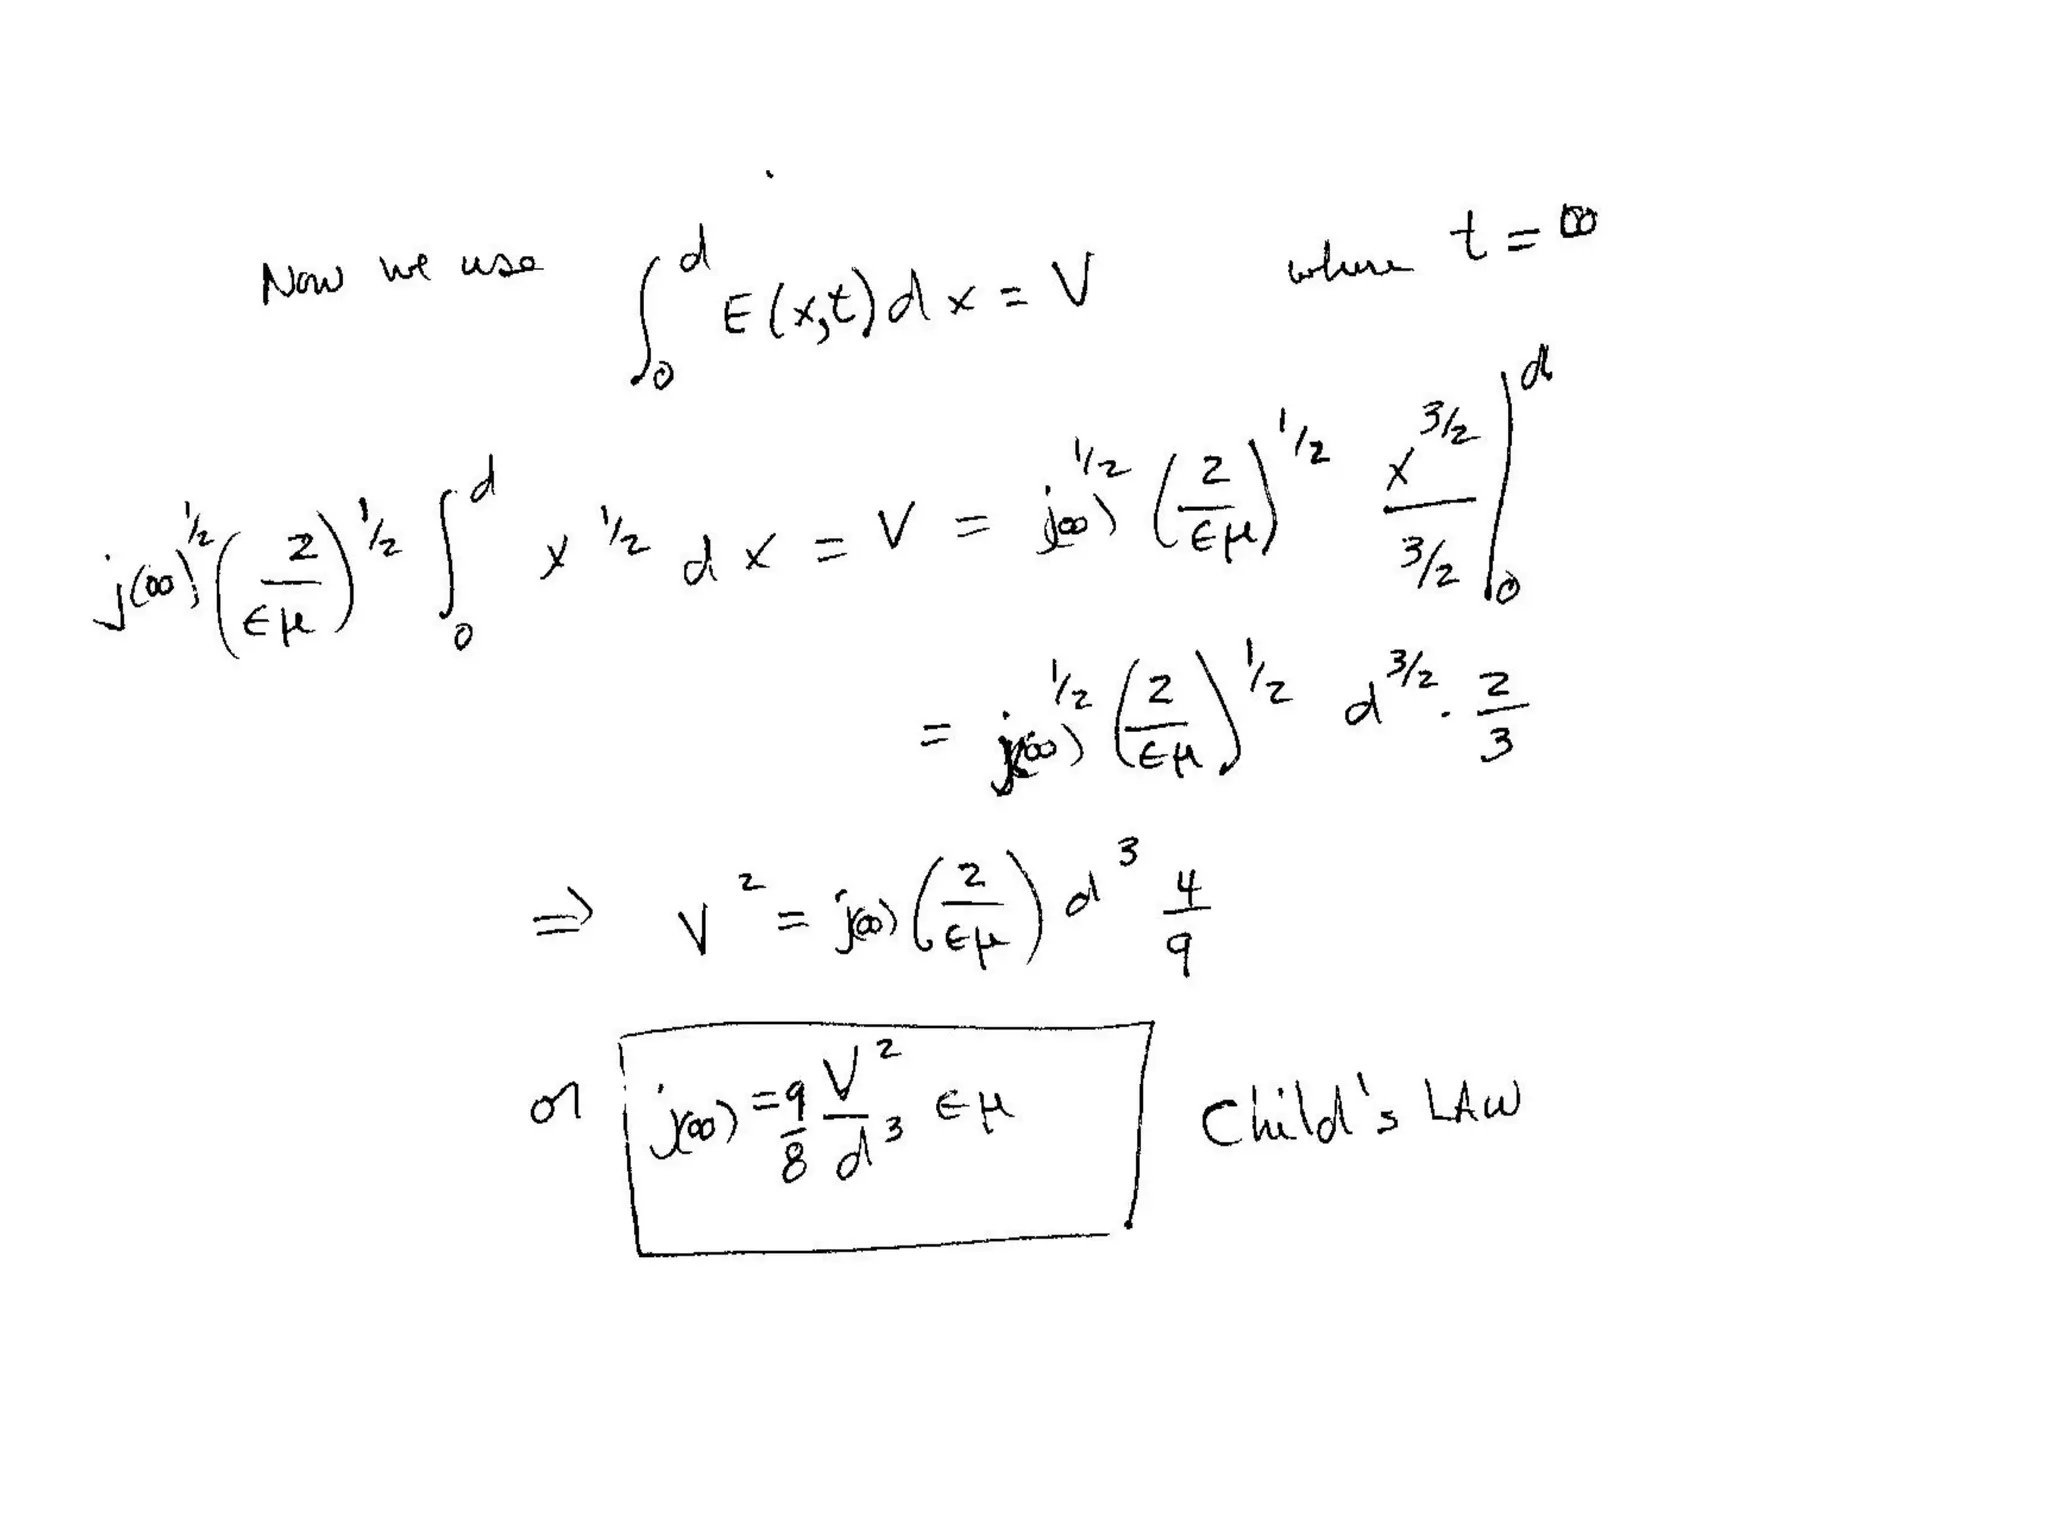 Now we use ∫₀ᵈ E(x,t)dx = V where t = ∞
j(∞)^1/2 (2/ϵμ)^1/2 ∫₀ᵈ x^1/2 dx = V = j(∞)^1/2 (2/ϵμ)^1/2 x^3/2 / 3/2 |₀ᵈ
= j(∞)^1/2 (2/ϵμ)^1/2 d^3/2 · 2/3
⇒ V² = j(∞) (2/ϵμ) d³ 4/9
or j(∞) = 9/8 V²/d³ ϵμ Child's LAW